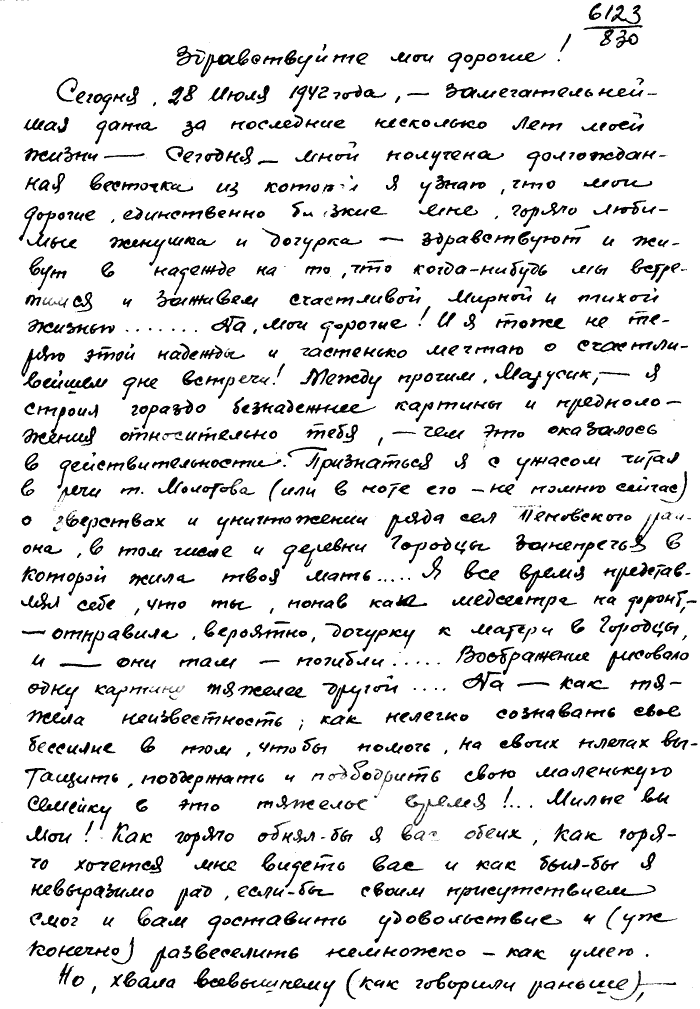 6123
830
Здравствуйте мои дорогие!
Сегодня, 28 Июля 1942 года, — замечательней-
шая дата за последние несколько лет моей
жизни — Сегодня — мной получена долгождан-
ная весточка из которой я узнаю, что мои
дорогие, единственно близкие мне, горячо люби-
мые женушка и дочурка — здравствуют и жи-
вут в надежде на то, что когда-нибудь мы встре-
тимся и заживем счастливой, мирной и тихой
жизнью....... Да, мои дорогие! И я тоже не те-
ряю этой надежды и частенько мечтаю о счастли-
вейшем дне встречи! Между прочим, Марусик, — я
строил гораздо безнадежнее картины и предполо-
жения относительно тебя, — чем это оказалось
в действительности. Признаться я с ужасом читал
в речи т. Молотова (или в ноте его — не помню сейчас)
о зверствах и уничтожении ряда сел Пеновского рай-
она, в том числе и деревни Городцы Занепречья в
которой жила твоя мать..... Я все время представ-
лял себе, что ты, попав как медсестра на фронт, —
— отправила, вероятно, дочурку к матери в Городцы,
и — они там — погибли..... Воображение рисовало
одну картину тяжелее другой.... Да — как тя-
жела неизвестность; как нелегко сознавать свое
бессилие в том, чтобы помочь, на своих плечах вы-
тащить, поддержать и подбодрить свою маленькую
семейку в это тяжелое время!... Милые вы
мои! Как горячо обнял-бы я вас обеих, как горя-
чо хочется мне видеть вас и как был-бы я
невыразимо рад, если-бы своим присутствием
смог и вам доставить удовольствие и (уж
конечно) развеселить немножко — как умею.
Но, хвала всевышнему (как говорили раньше), —